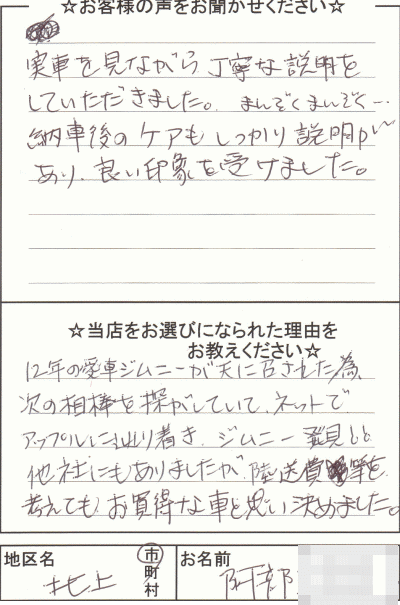 ☆お客様の声をお聞かせください☆
実車を見ながら丁寧な説明を
していただきました。まんぞくまんぞく…
納車後のケアもしっかり説明が
あり、良い印象を受けました。
☆当店をお選びになられた理由を
お教えください☆
12年の愛車ジムニーが天に召された為、
次の相棒を探がしていて、ネットで
アップルに辿り着き、ジムニー発見！！
他社にもありましたが、陸送費等を
考えてもお買得な車と思い決めました。
地区名 北上 市町村 お名前 阿部